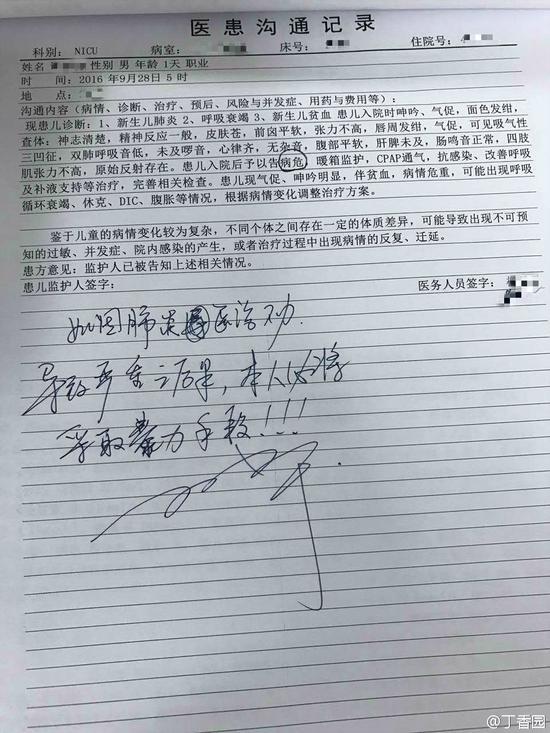 医患沟通记录
科别: NICU 病室: 床号: 住院号:
姓名 性别 男 年龄 1天 职业
时 间: 2016年9月28日 5时
地 点:
沟通内容(病情、诊断、治疗、预后、风险与并发症、用药与费用等):
现患儿诊断: 1、新生儿肺炎 2、呼吸衰竭 3、新生儿贫血 患儿入院时呻吟、气促,面色发绀,
查体: 神志清楚,精神反应一般,皮肤苍,前囟平软,张力不高,唇周发绀,气促,可见吸气性
三凹征,双肺呼吸音低,未及啰音,心律齐,无杂音,腹部平软,肝脾未及,肠鸣音正常,四肢
肌张力不高,原始反射存在。患儿入院后予以告病危,暖箱监护,CPAP通气,抗感染、改善呼吸
及补液支持等治疗,完善相关检查。患儿现气促、呻吟明显,伴贫血,病情危重,可能出现呼吸
循环衰竭、休克、DIC、腹胀等情况,根据病情变化调整治疗方案。
鉴于儿童的病情变化较为复杂,不同个体之间存在一定的体质差异,可能导致出现不可预
知的过敏、并发症、院内感染的产生,或者治疗过程中出现病情的反复、迁延。
患方意见: 监护人已被告知上述相关情况。
患儿监护人签字: 医务人员签字:
如因肺炎医治不力
导致严重之后果,本人必将
采取暴力手段!!!
@丁香园